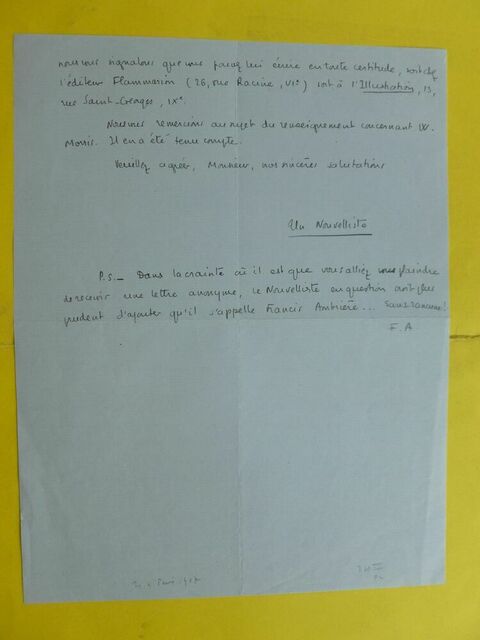 nous vous signalons que vous pouvez lui écrire en toute certitude, soit chez
l'éditeur Flammarion (26, rue Racine, VIe) soit à l'Illustration, 13,
rue Saint-Georges, IXe.
Nous vous remercions au sujet du renseignement concernant W.
Morris. Il en a été tenu compte.
Veuillez agréer, Monsieur, nos sincères salutations
Un Nouvelliste
P.S._ Dans la crainte où il est que vous alliez vous plaindre
de recevoir une lettre anonyme, le Nouvelliste en question croit plus
prudent d'ajouter qu'il s'appelle Francis Ambrière... Sans rancune!
F. A